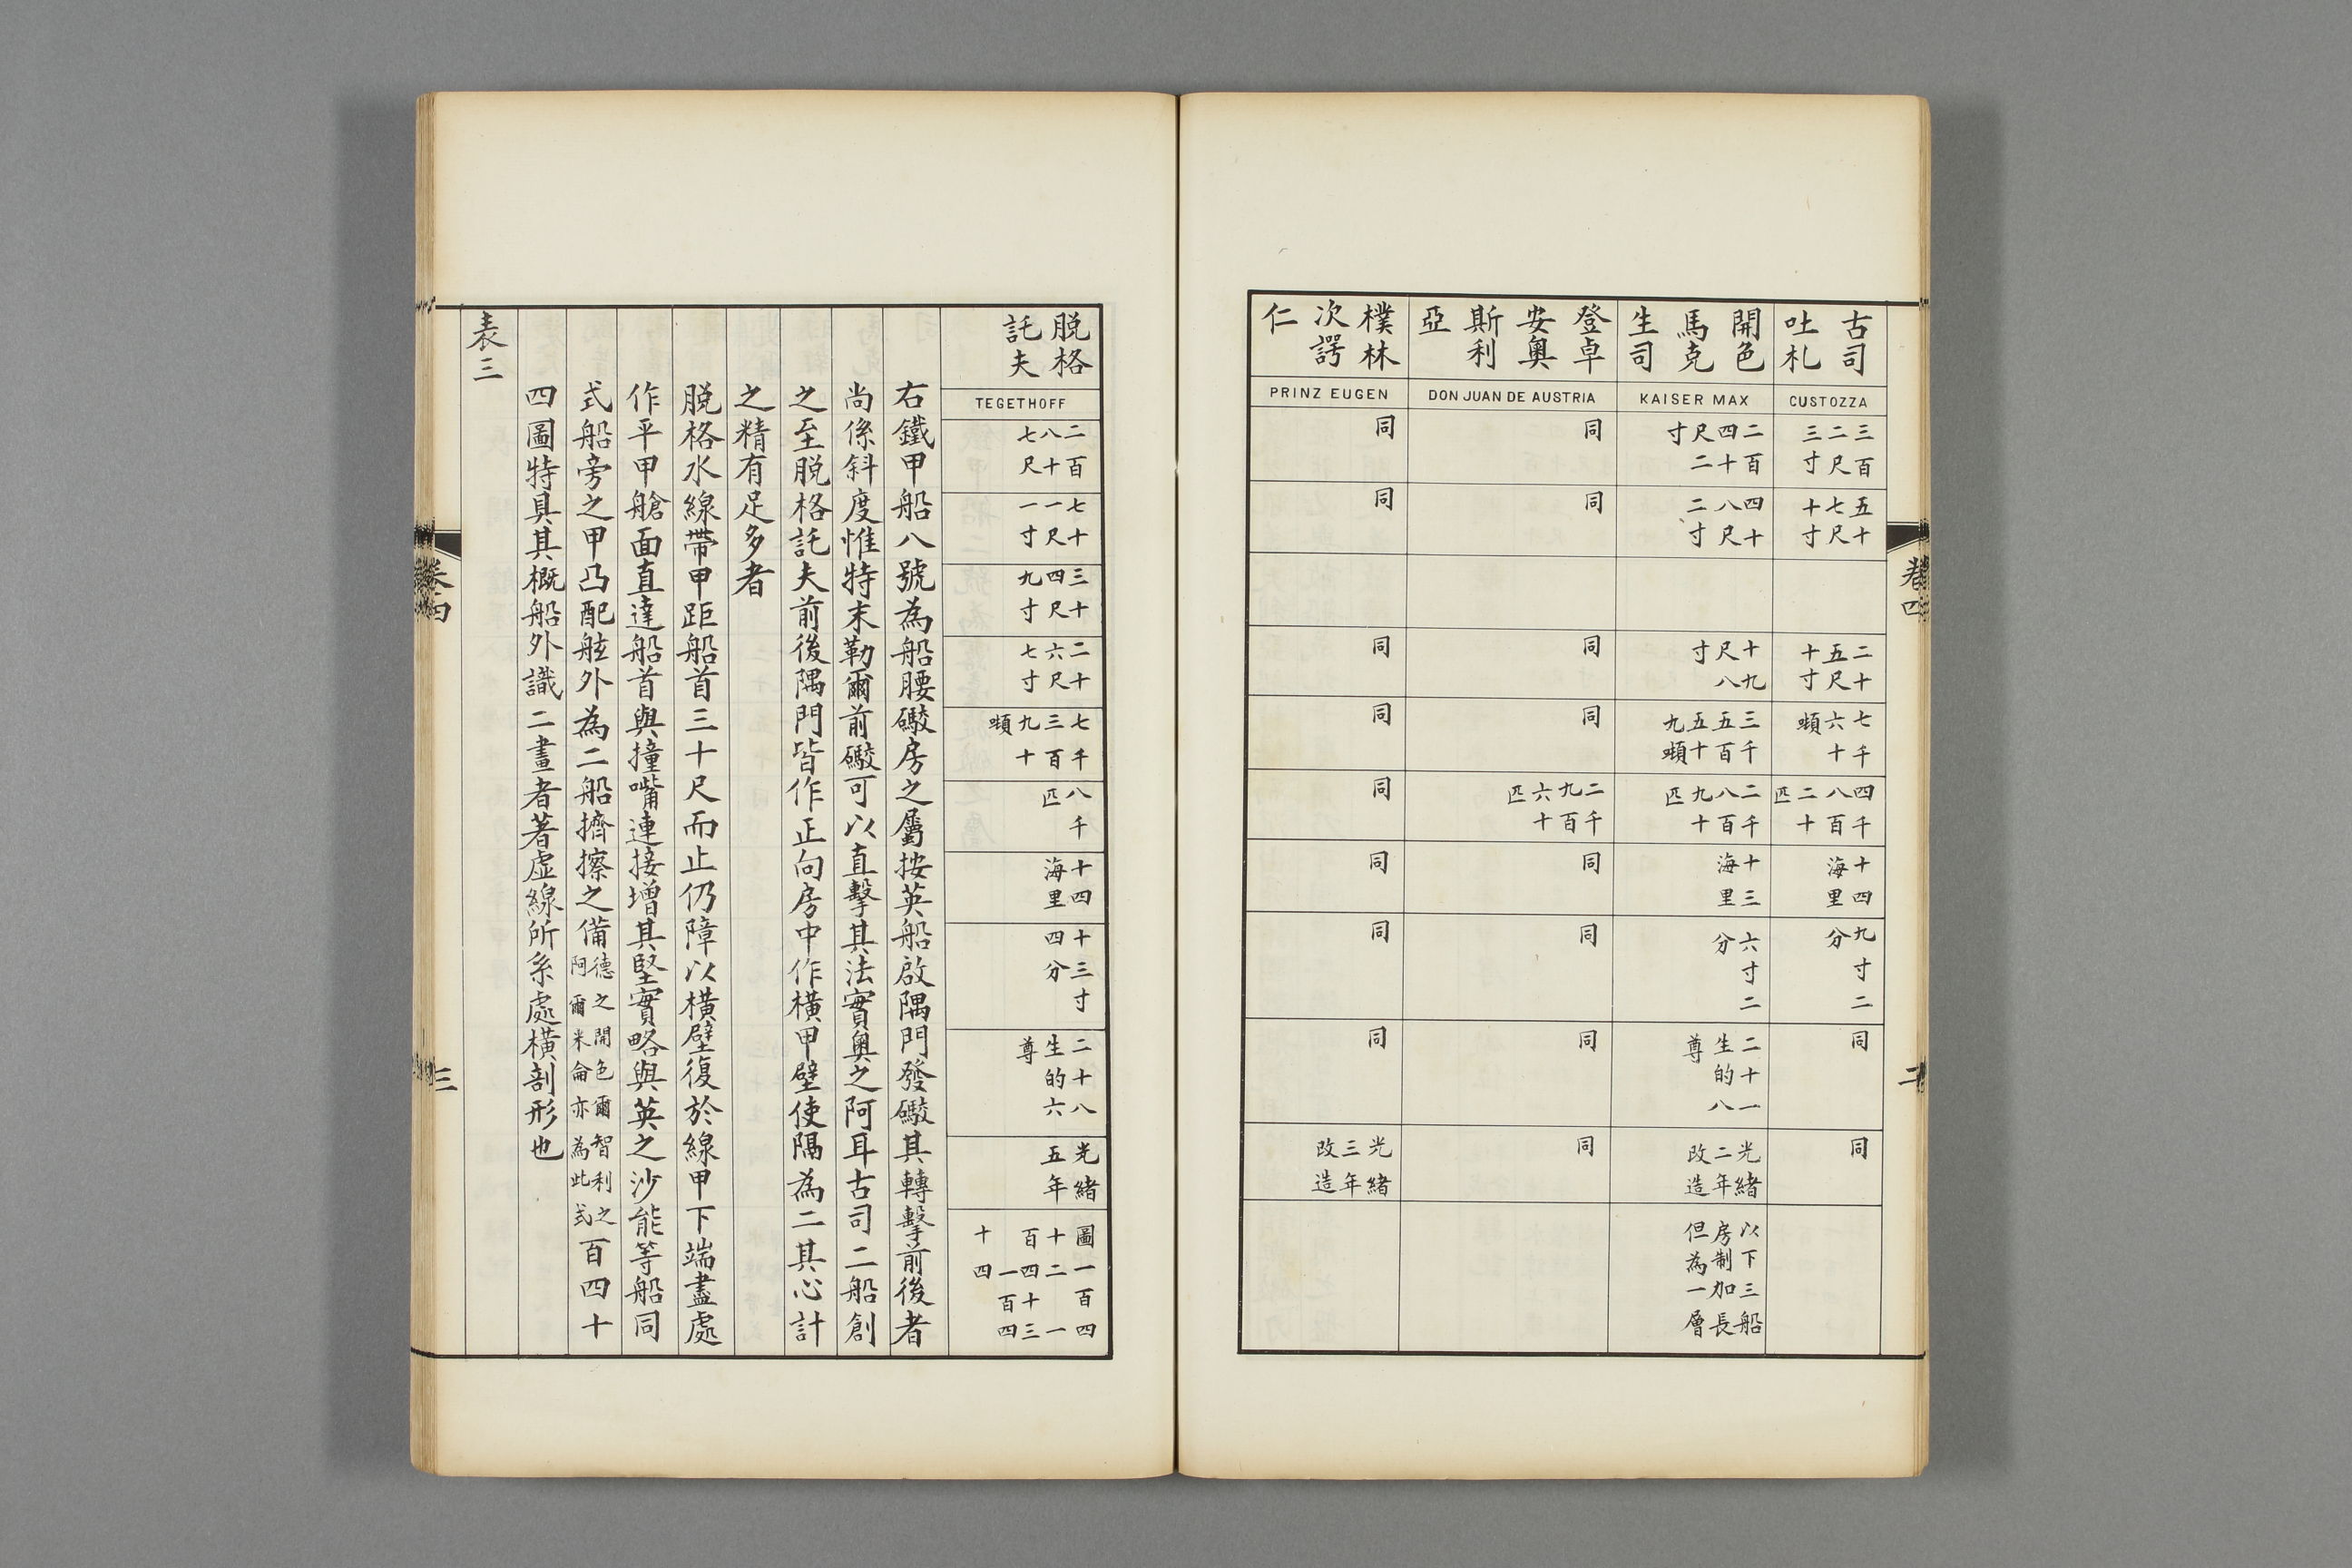 卷四
二
古司吐札
CUSTOZZA
三百二尺三寸
五十七尺十寸
二十五尺十寸
七千六十噸
四千八百二十匹
十四海里
九寸二分
同
同
開色馬克生司
KAISER MAX
二百四十尺二寸
四十八尺二寸
十九尺八寸
三千五百五十九噸
二千八百九十匹
十三海里
六寸二分
二十一生的八尊
光緒二年改造
以下三船房制加長但為一層
登卓安奧斯利亞
DON JUAN DE AUSTRIA
同
同
同
同
二千九百六十匹
同
同
同
同
樸林次諤仁
PRINZ EUGEN
同
同
同
同
同
同
同
同
光緒三年改造
脱格託夫
TEGETHOFF
二百八十七尺
七十一尺一寸
三十四尺九寸
二十六尺七寸
七千三百九十噸
八千匹
十四海里
十三寸四分
二十八生的六尊
光緒五年
圖一百四十二一百四十三一百四十四
右鐵甲船八號為船腰礮房之屬按英船啟隅門發礮其轉擊前後者
尚係斜度惟特末勒爾前礮可以直擊其法實奧之阿耳古司二船創
之至脱格託夫前後隅門皆作正向房中作橫甲壁使隔為二其心計
之精有足多者
脱格水線帶甲距船首三十尺而止仍障以橫壁復於線甲下端盡處
作平甲艙面直達船首與撞嘴連接增其堅實略與英之沙能等船同
式船旁之甲凸配舷外為二船擠擦之備德之開色爾智利之阿爾米侖亦為此式百四十
四圖特具其概船外識二畫者著虛線所系處橫剖形也
表三
卷四
三